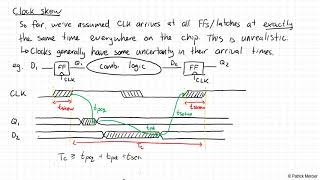 Clock skew
So far, we've assumed CLK arrives at all FFs/latches at exactly
the same time everywhere on the chip. This is unrealistic.
↳ Clocks generally have some uncertainty in their arrival times.
eg. D₁ FF Q₁ comb. logic D₂ FF Q₂
CLK CLK
CLK
tskew tpcq tsetup tskew
Q₁
tpd
D₂
Tc
Tc ≥ tpcq + tpd + tse
© Patrick Mercier